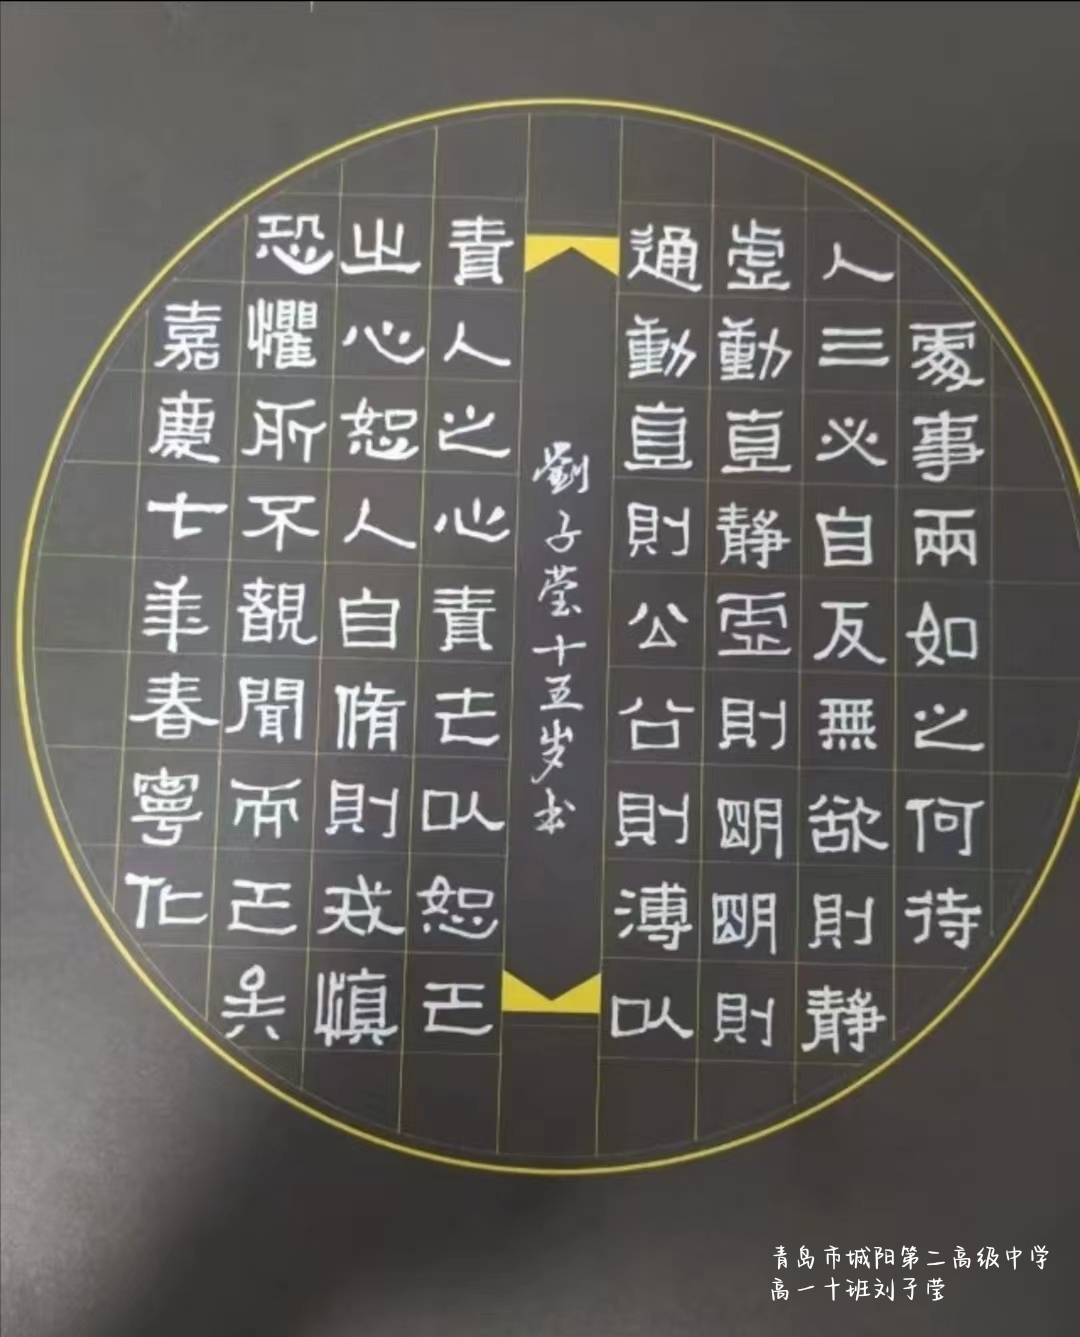 處事兩如之何待
人三必自反無欲則靜
虛動直靜虛則明明則
通動直則公公則溥以
劉子莹十五岁书
責人之心責己以恕己
之心恕人自脩則戒慎
恐懼所不覩聞而已矣
嘉慶七年春寧化
青岛市城阳第二高级中学
高一十班刘子莹